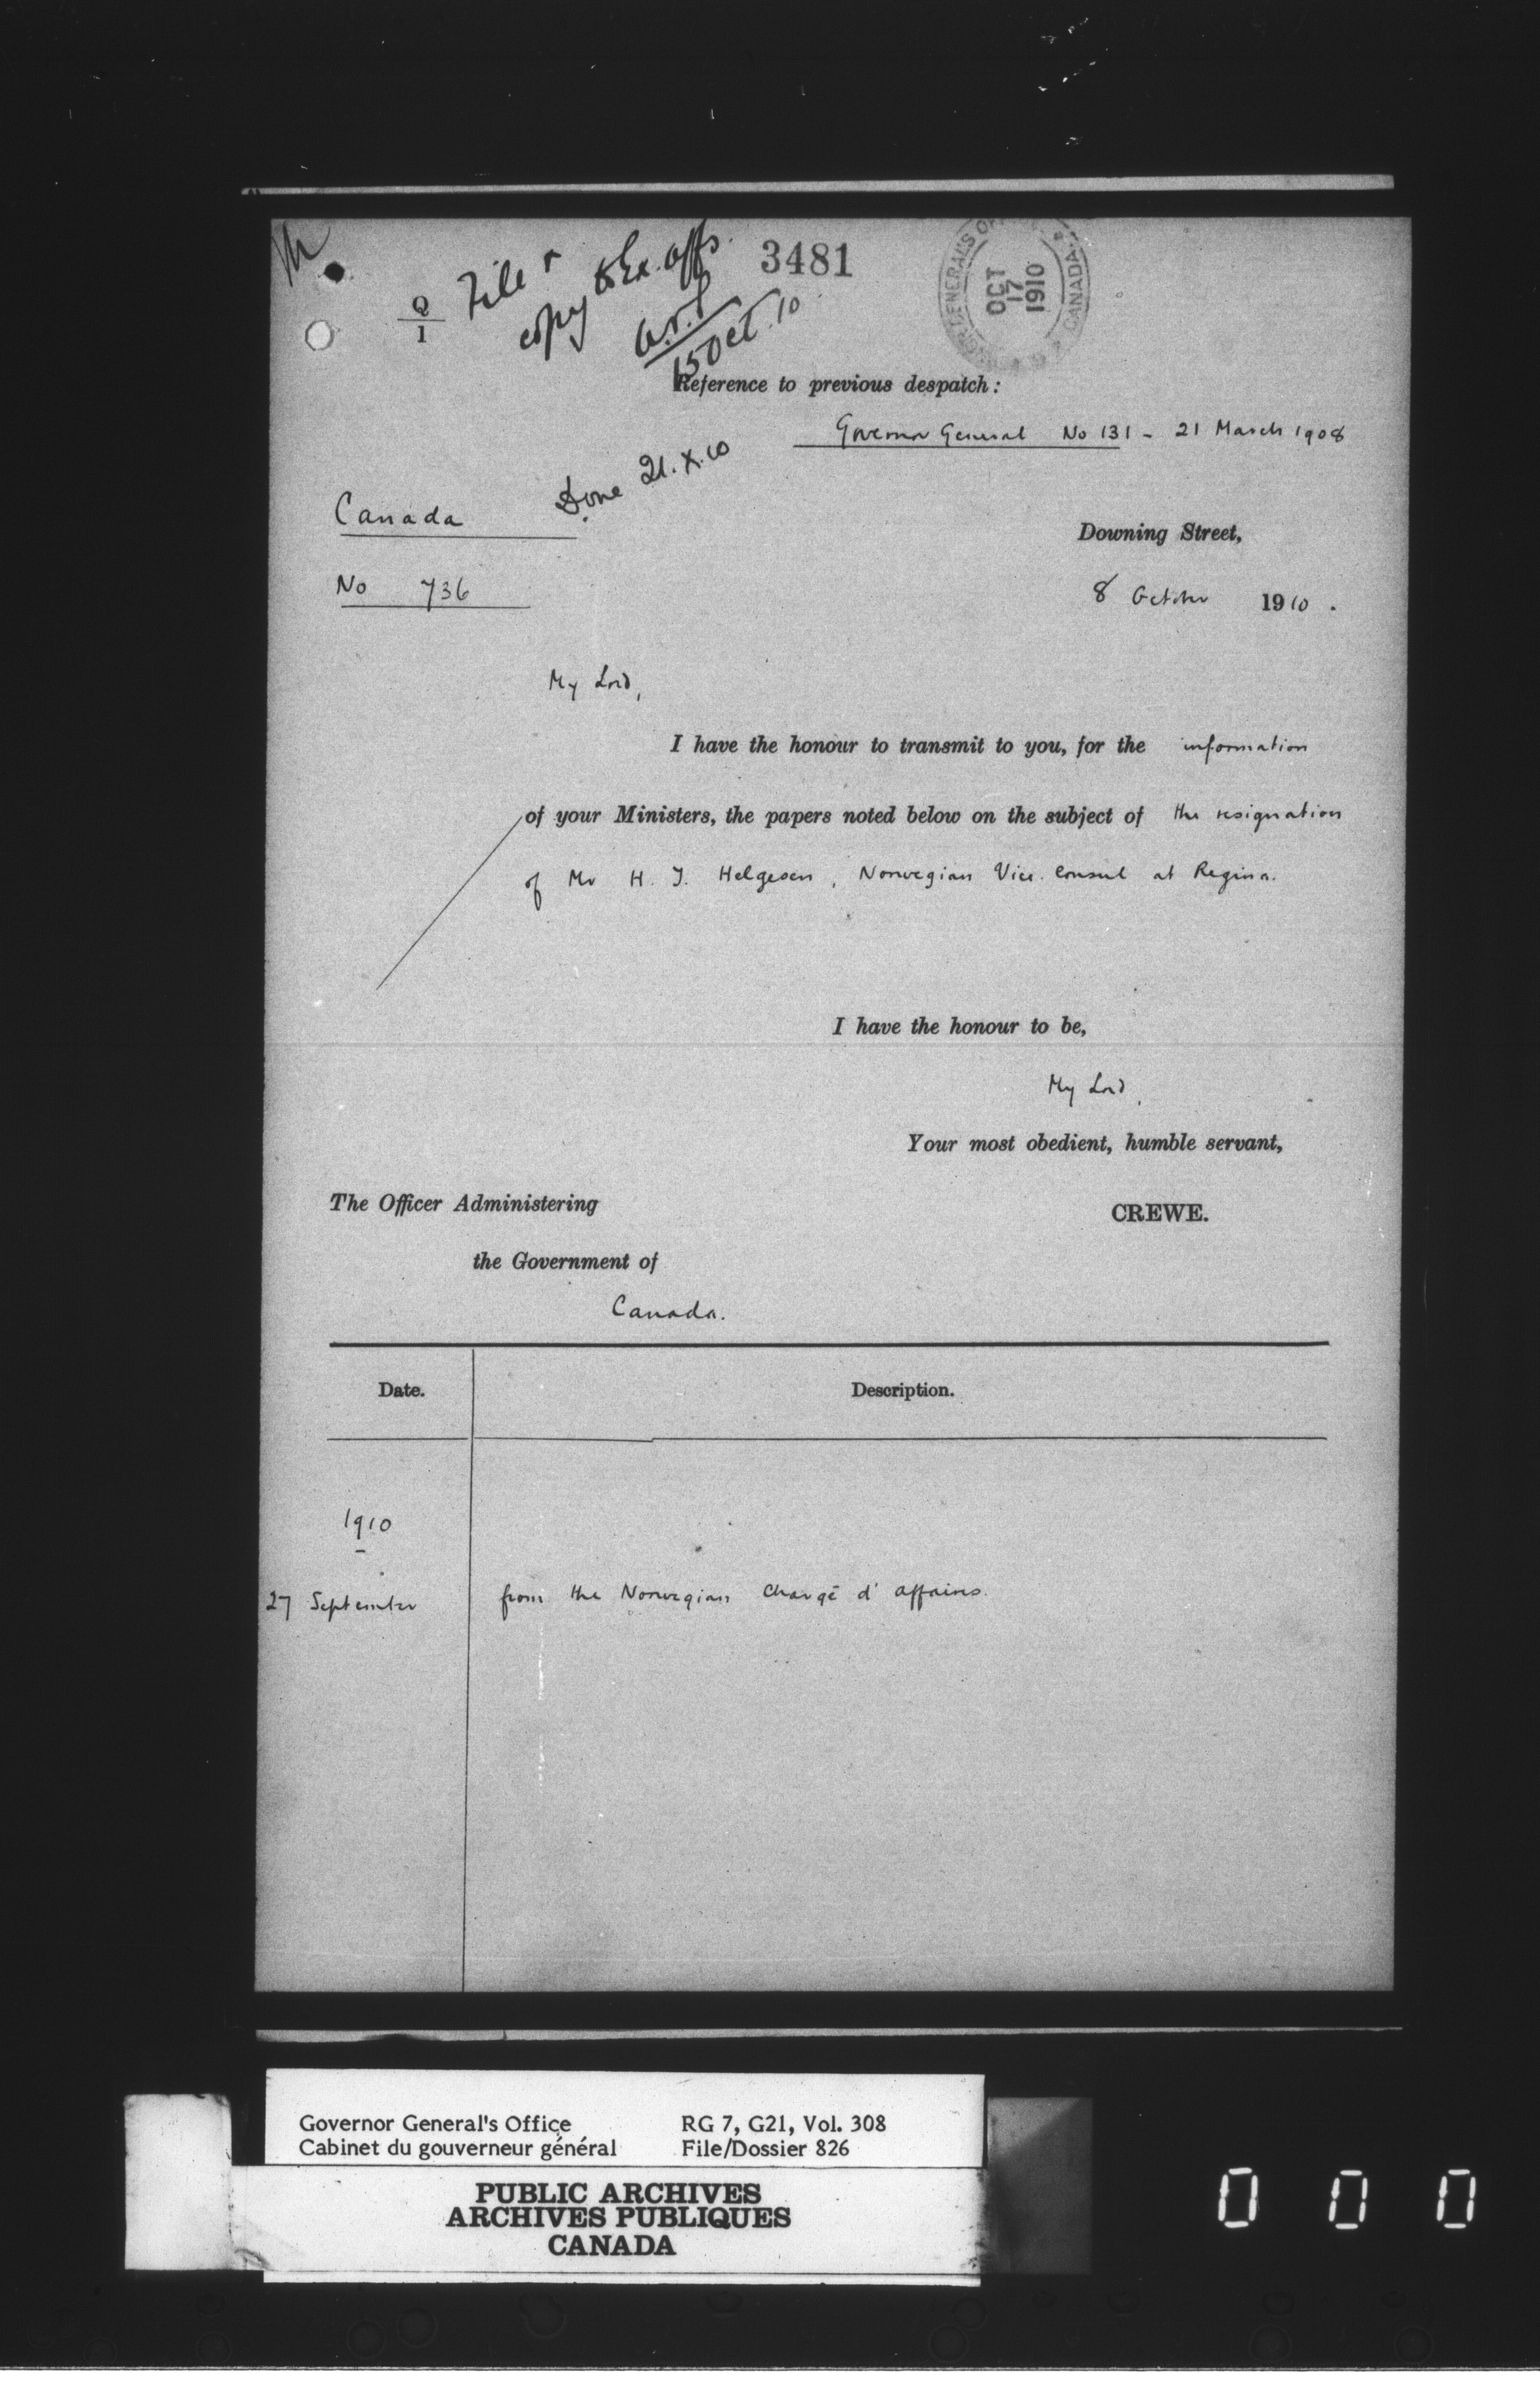 Q
1
File &
copy to Ex. affs.
15 Oct. 10
3481
GENERAL'S
OCT
17
1910
CANADA
Reference to previous despatch:
Governor General No 131 - 21 March 1908
Done 21.X.10
Canada
Downing Street,
No 736
8 October 1910.
My Lord,
I have the honour to transmit to you, for the information
of your Ministers, the papers noted below on the subject of the resignation
of Mr H. J. Helgesen, Norwegian Vice. Consul at Regina.
I have the honour to be,
My Lord,
Your most obedient, humble servant,
The Officer Administering
CREWE.
the Government of
Canada.
Date.
Description.
1910
27 September
from the Norwegian Chargé d'affaires.
Governor General's Office RG 7, G21, Vol. 308
Cabinet du gouverneur général File/Dossier 826
PUBLIC ARCHIVES
ARCHIVES PUBLIQUES
CANADA
0 0 0